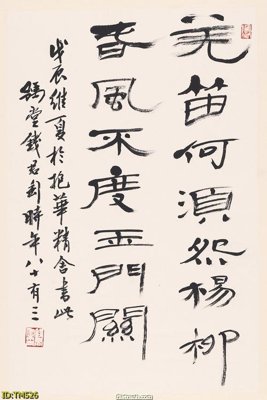 羌笛何湏怨楊柳
春風不度玉門關
戊辰維夏於抱華精舍書此
錢君匋時年八十有三
ID:TN526